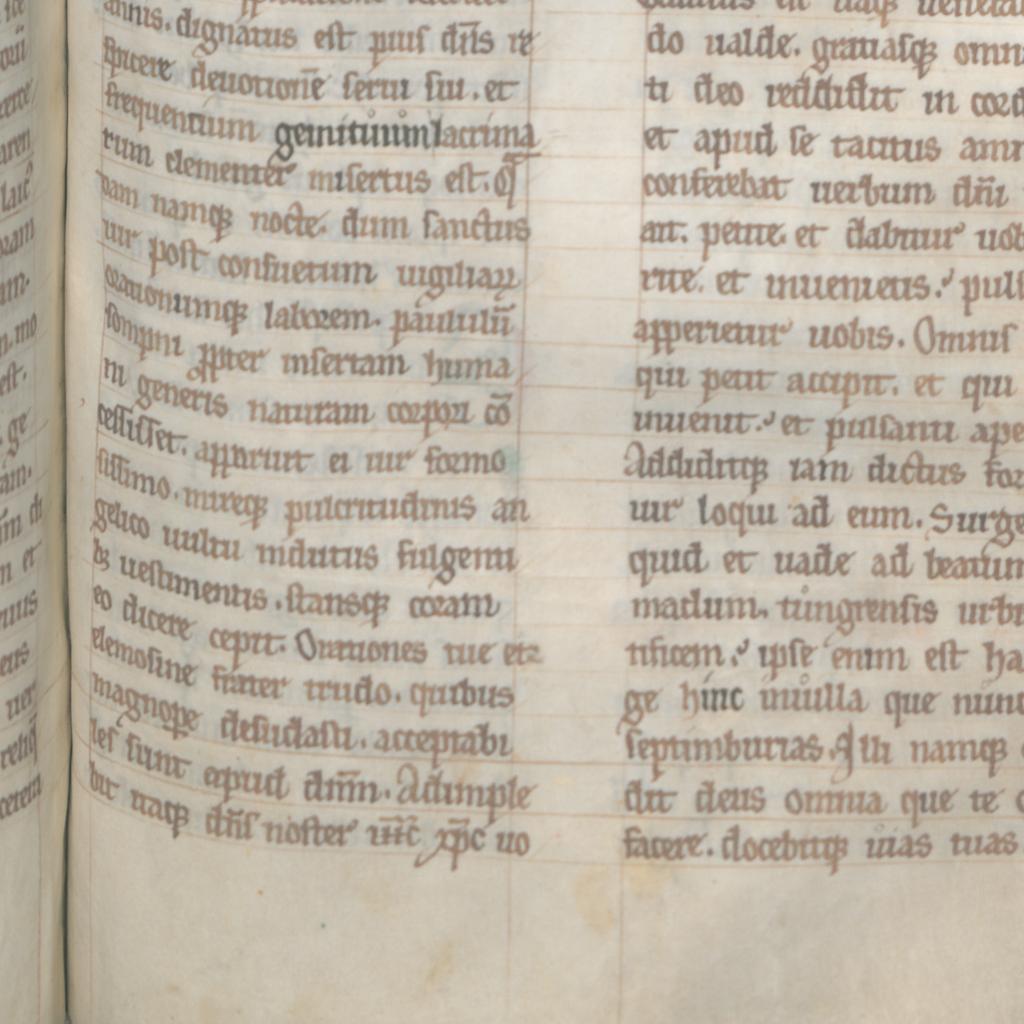 annis. dignatus est pius dñs re
spicere deuotionē serui sui. et
frequentium gemituum lacrima
rum clementer misertus est. Qͣ
dam namqꝫ nocte. dum sanctus
uir post consuetum uigiliaꝝ
orationumqꝫ laborem. paululū
sompni ꝓpter miseriam huma
ni generis naturam corpori cō
cessisset. apparuit ei uir formo
sissimo. mireqꝫ pulcritudinis an
gelico uultu indutus fulgenti
bꝫ uestimentis. stansqꝫ coram
eo dicere cepit. Orationes tue et
elemosine frater trudo. quibus
magnope desudasti. acceptabi
les sunt apud dn̄m. Adimple
bit itaqꝫ dñs noster ih̄c xp̄c uo
do ualde. gratiasqꝫ omni
ti deo reddidit in cord
et apud se tacitus
conferebat uerbum dñi
ait. petite. et dabitur uob
rite. et inuenietis. puls
apperietur uobis. Omnis
qui petit accipit. et qui
inuenit. et pulsanti ape
Addiditqꝫ iam dictus for
uir loqui ad eum. Surge
quid et uade ad beatum
maclum. tungrensis urbi
tificem. ipse enim est ha
ge hinc in uilla que nunc
septimburias. Illi namqꝫ
dit deus omnia que te o
facere. docebitqꝫ uias tuas